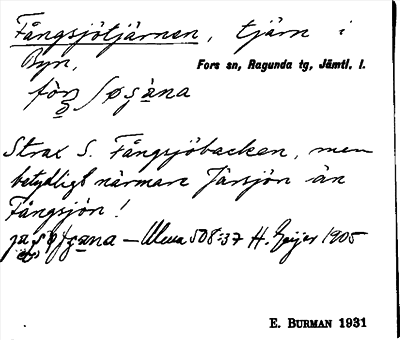 Fångsjötjärnen, tjärn i
Byn, Fors sn, Ragunda tg, Jämtl. l.
Strax S. Fångsjöbacken, men
betydligt närmare Järsjön än
Fångsjön!
508:37 H. Geijer 1905
E. BURMAN 1931